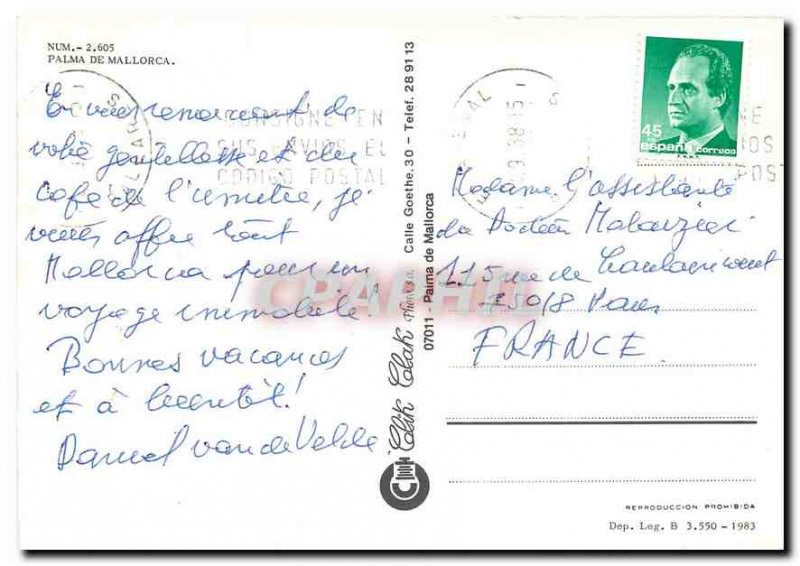 NUM.- 2.605
PALMA DE MALLORCA.
En remerciement de
votre gentillesse et du
café de l'amitié, je
vous offre tout
Mallorca pour un
voyage immobile!
Bonnes vacances
et à bientôt!
Daniel van de Velde
CONSIGNE EN
SUS ENVIOS EL
CODIGO POSTAL
Clik Clak
Calle Goethe, 30 - Telef. 28 91 13
07011 - Palma de Mallorca
CPAPHIL
45
españa correos
Madame l'assistante
du Docteur
115 rue de Caulaincourt
75018 Paris
FRANCE
REPRODUCCION PROHIBIDA
Dep. Leg. B 3.550 - 1983